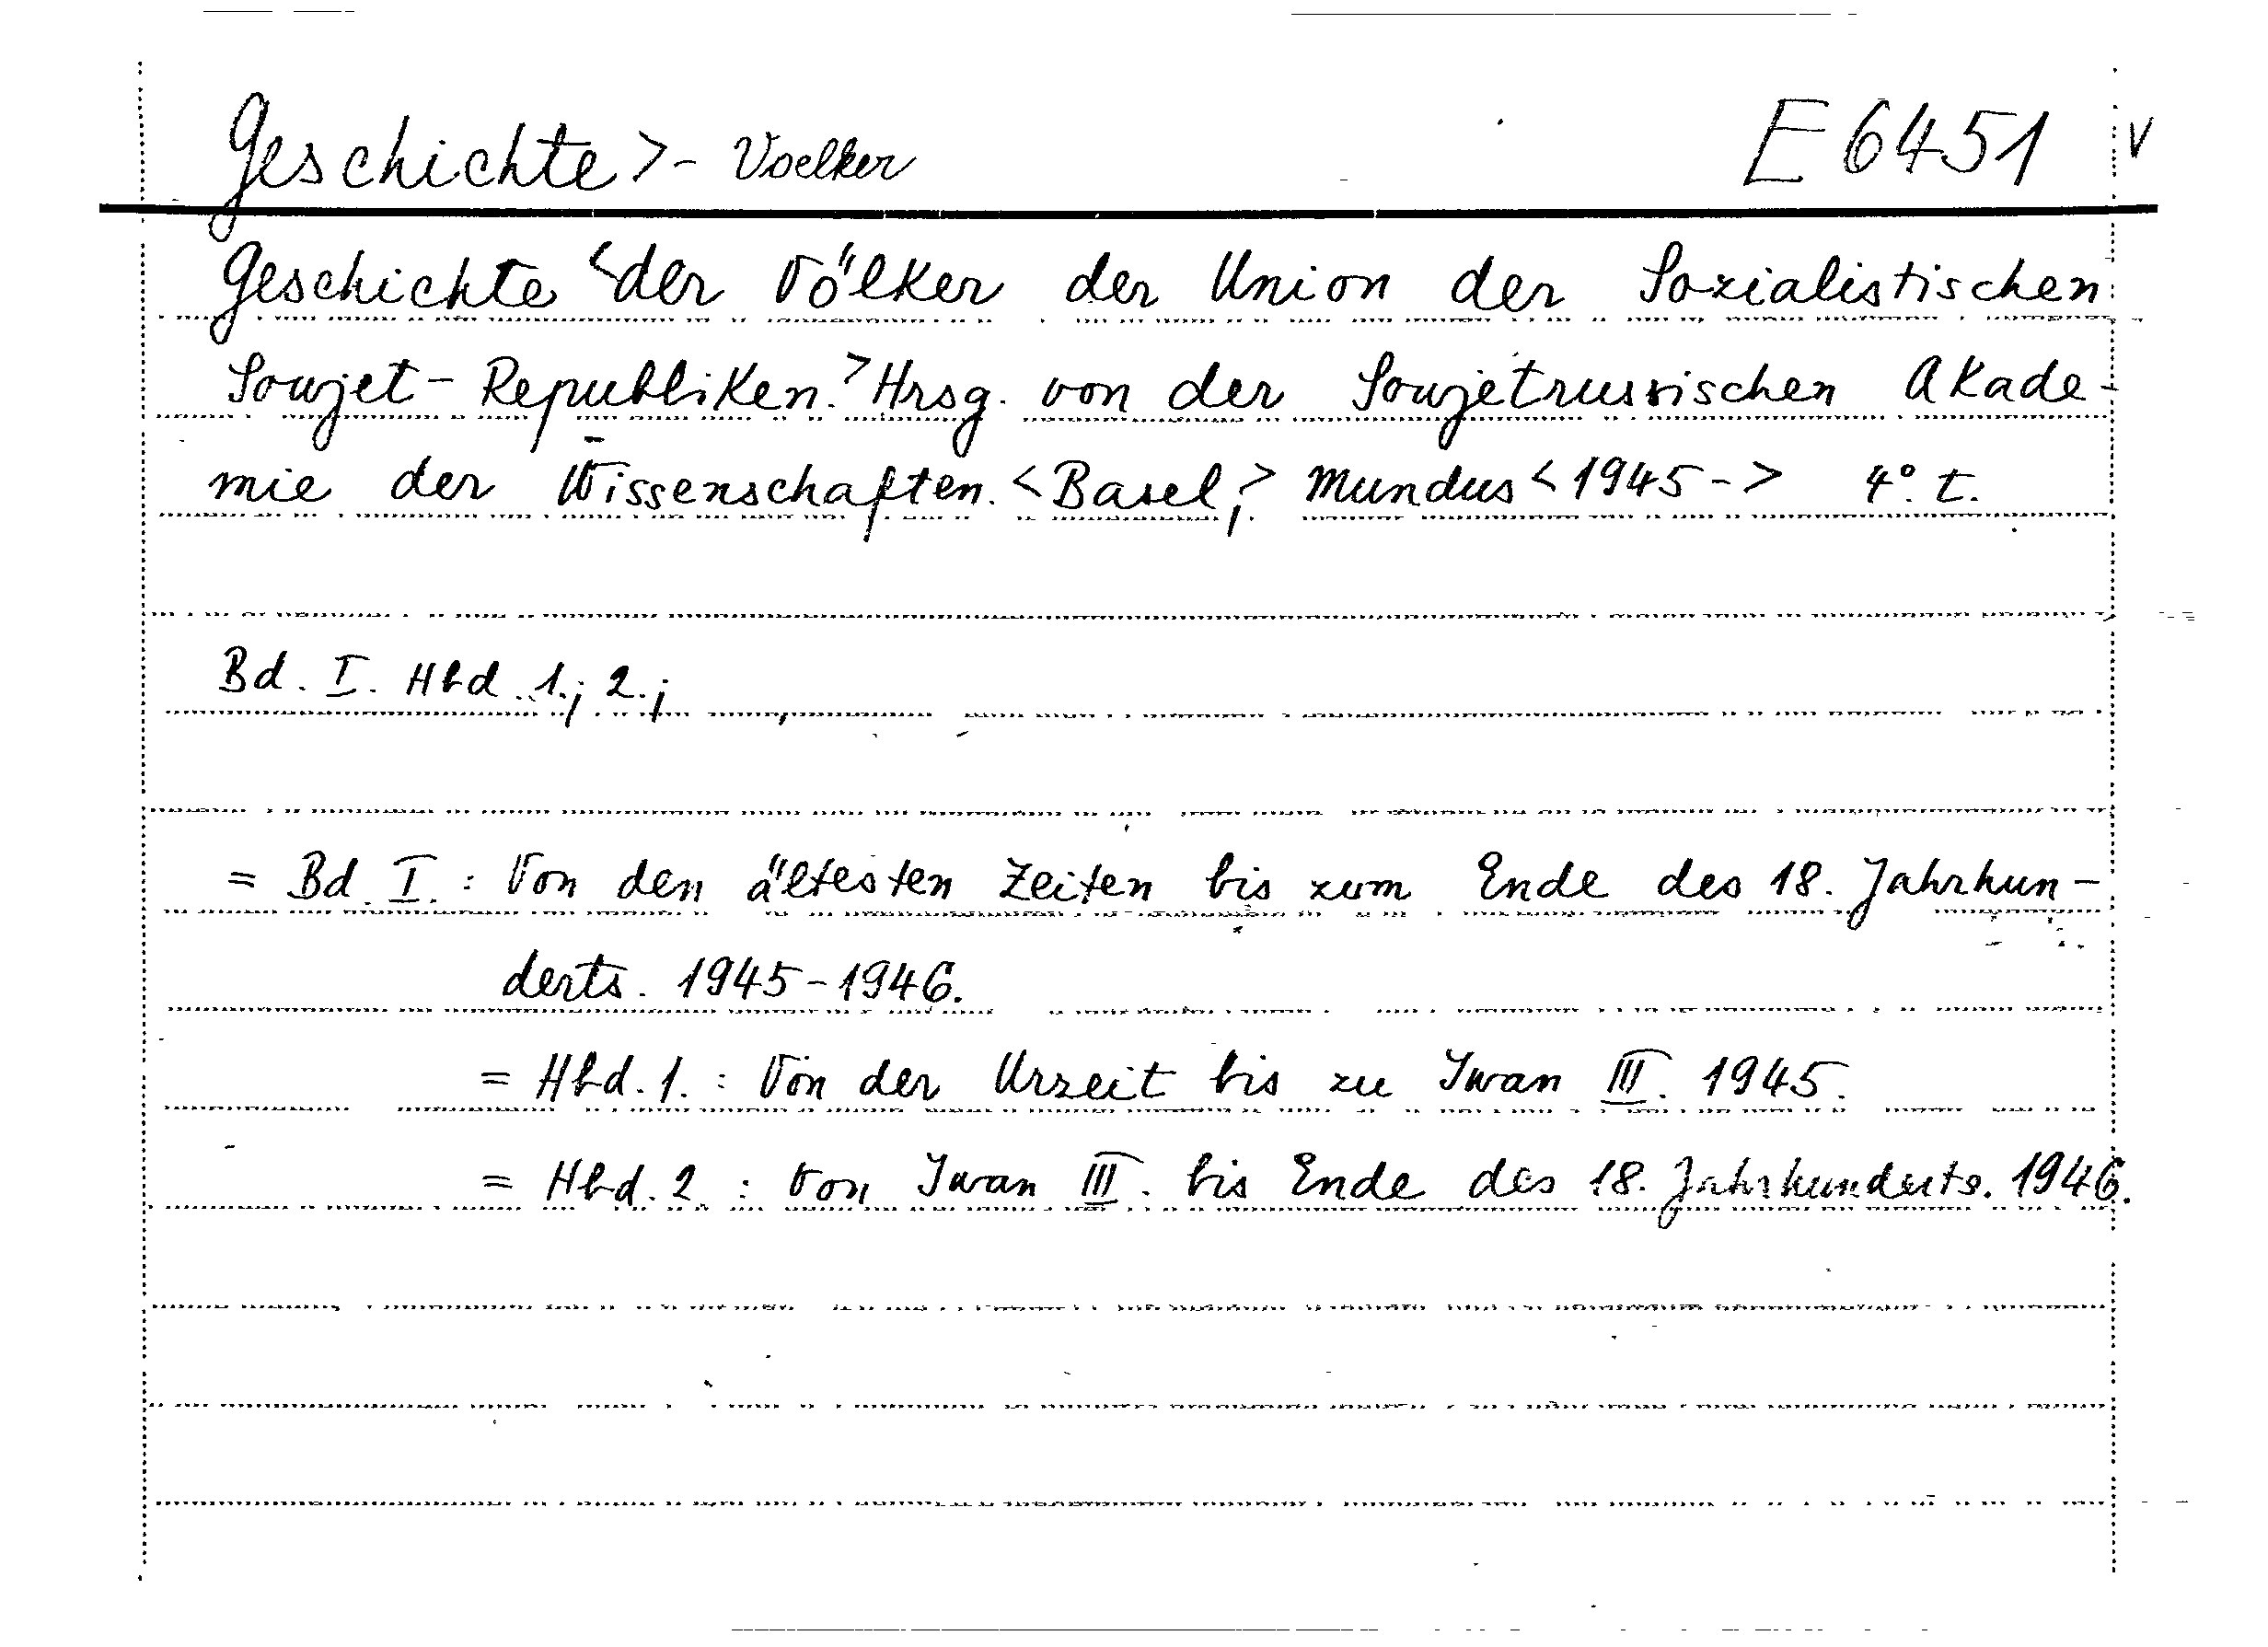 Geschichte >- Voelker E 6451 v
Geschichte < der Völker der Union der Sozialistischen
Sowjet-Republiken. > Hrsg. von der Sowjetrussischen Akade-
mie der Wissenschaften. < Basel, > Mundus < 1945 - > 4°. t.
Bd. I. Hbd. 1.; 2.;
= Bd. I. : Von den ältesten Zeiten bis zum Ende des 18. Jahrhun-
derts. 1945-1946.
= Hbd. 1. : Von der Urzeit bis zu Iwan III. 1945.
= Hbd. 2. : Von Iwan III. bis Ende des 18. Jahrhunderts. 1946.